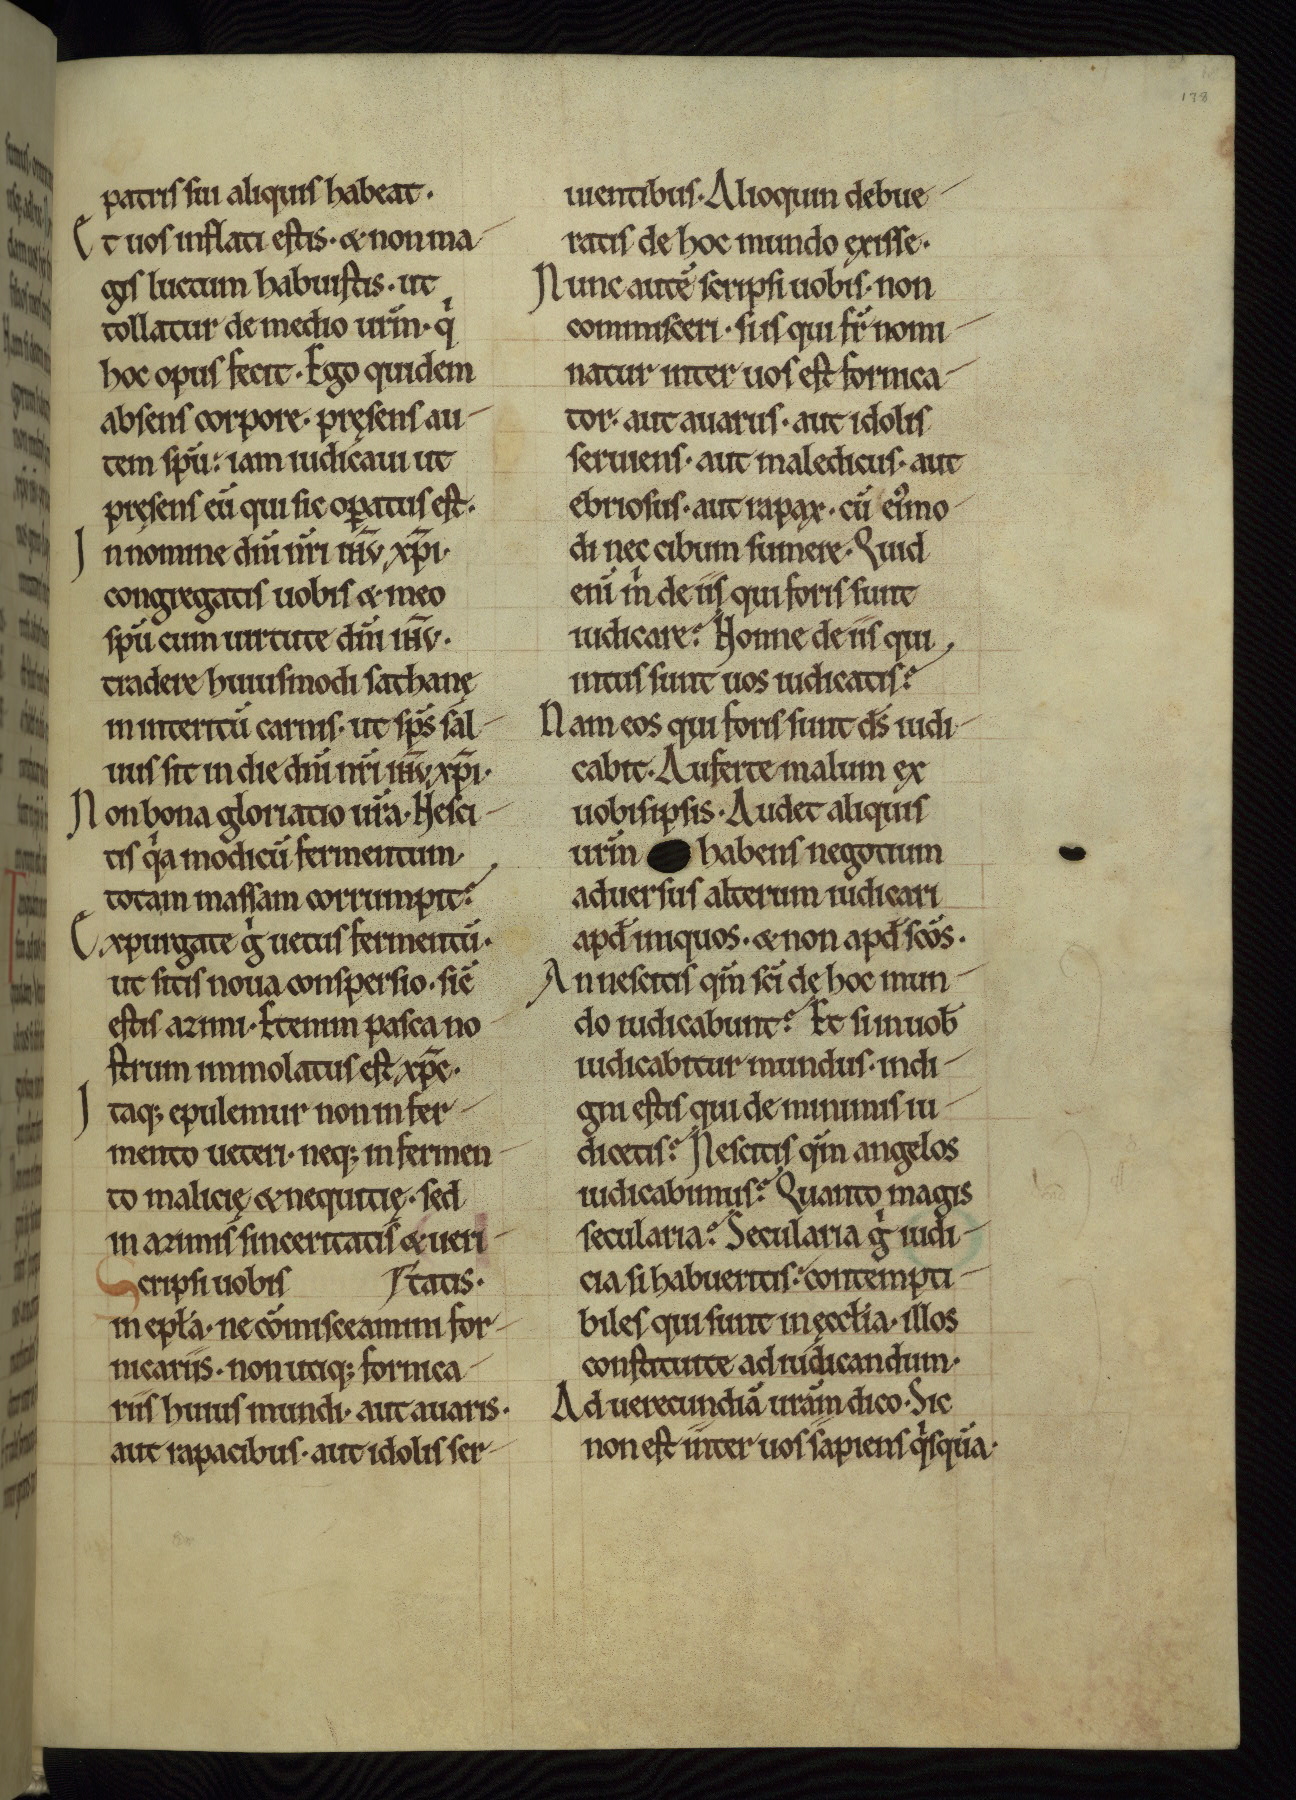 138
patris sui aliquis habeat·
Et uos inflati estis· & non ma-
gis luctum habuistis· ut
tollatur de medio ur̄m· qͥ
hoc opus fecit· Ego quidem
absens corpore· pręsens au-
tem spū: iam iudicaui ut
pręsens eū qui sic oꝑatus est·
In nomine dnī nr̄i ihū xp̄i·
congregatis uobis & meo
spū cum uirtute dnī ihū·
tradere huiusmodi sathanę
in interitū carnis· ut sps̄ sal-
uus sit in die dnī nr̄i ihū xp̄i·
Non bona gloriatio ur̄a· Nesci-
tis qͥa modicū fermentum·
totam massam corrumpit?
Expurgate gͦ uetus fermentū·
ut sitis noua conspersio· sic̄
estis azimi· Etenim pasca no
strum immolatus est xp̄c·
Itaq; epulemur non in fer-
mento ueteri· neq; in fermen-
to malicię & nequitię· sed
in azimis sinceritatis & ueri
Scripsi uobis tatis·
in epła· ne cōmisceamini for-
nicariis· non utiq; fornica-
riis huius mundi· aut auaris·
aut rapacibus· aut idolis ser-
uientibus· Alioquin debue-
ratis de hoc mundo exisse·
Nunc autē scripsi uobis· non
commisceri· si is qui fr̄ nomi-
natur inter uos est fornica-
tor· aut auarus· aut idolis
seruiens· aut maledicus· aut
ebriosus· aut rapax· cū eiͯmo-
di nec cibum sumere· Quid
enī mͥ de iis qui foris sunt
iudicare? Nonne de iis qui
intus sunt uos iudicatis?
Nam eos qui foris sunt ds̄ iudi-
cabit· Auferte malum ex
uobisipsis· Audet aliquis
ur̄m habens negotium
aduersus alterum iudicari
apd̄ iniquos· & non apd̄ scōs·
An nescitis qm̄ scī de hoc mun-
do iudicabunt? Et si in uob̄
iudicabitur mundus· indi-
gni estis qui de minimis iu-
dicetis? Nescitis qm̄ angelos
iudicabimus? Quanto magis
secularia? Secularia gͦ iudi-
cia si habueritis: contempti-
biles qui sunt in ęccłia· illos
constituite ad iudicandum·
Ad uerecundiā urām dico· Sic
non est inter uos sapiens qͥsquā·